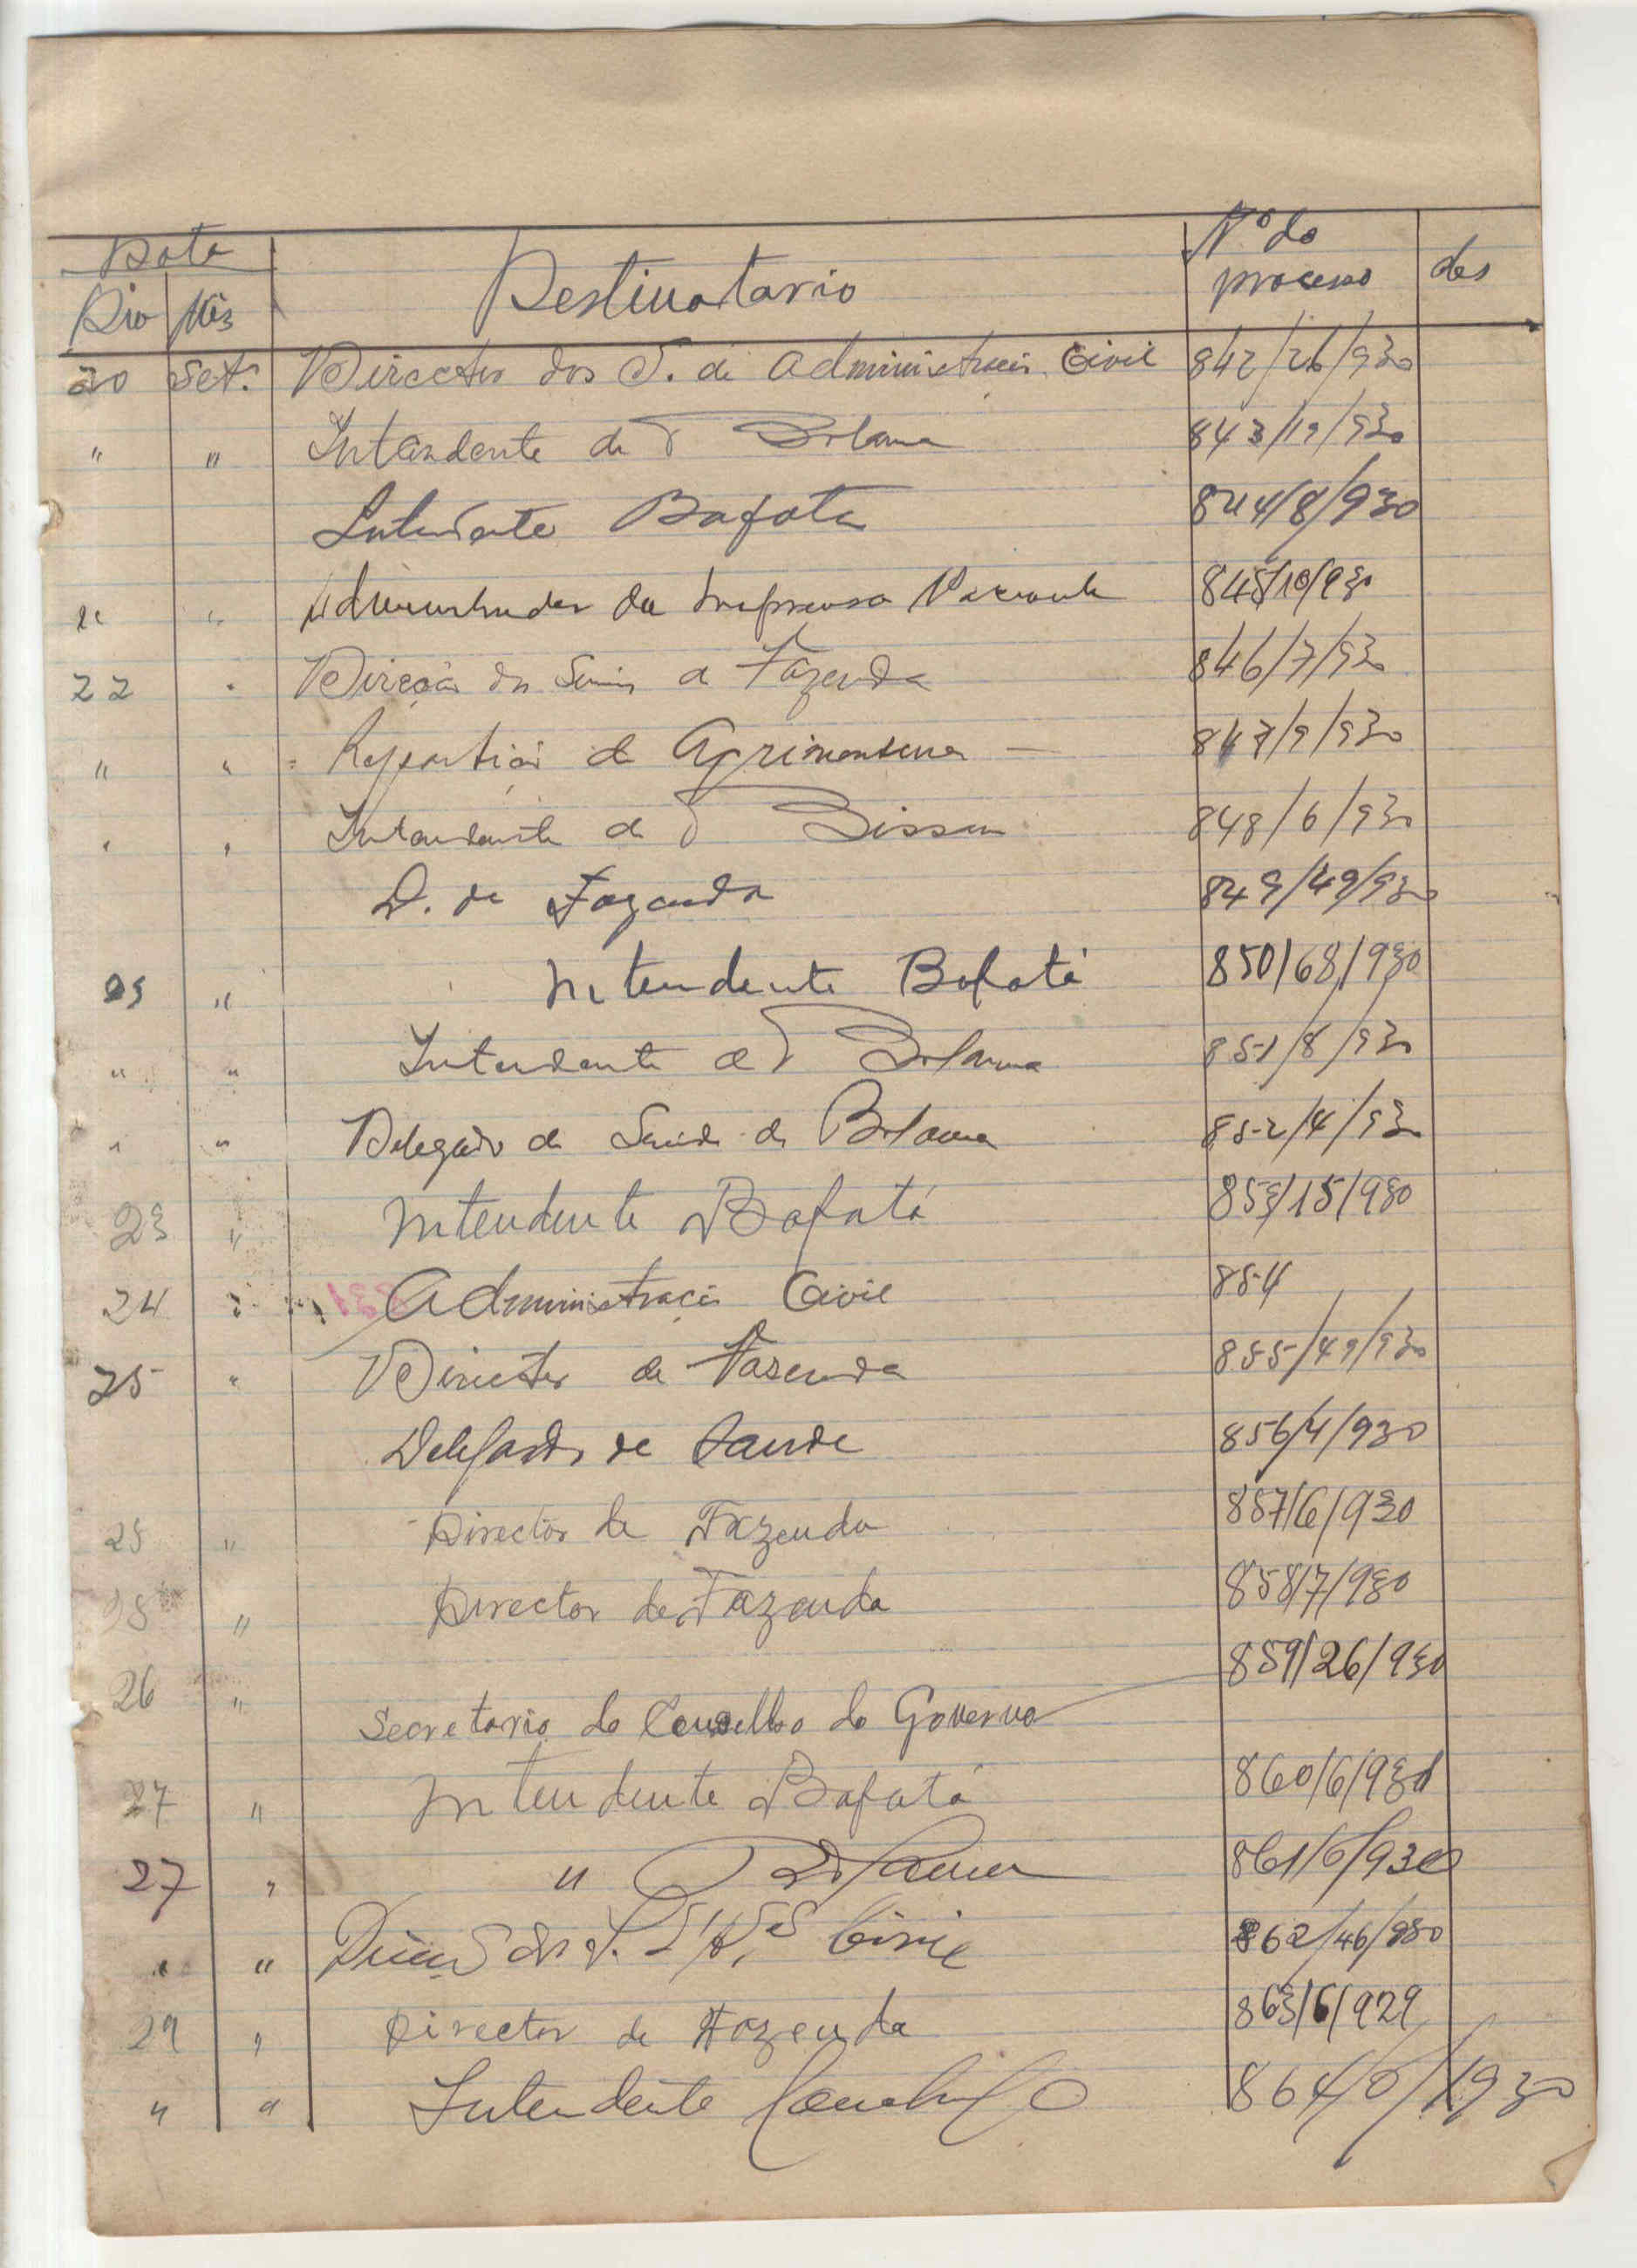 Data Destinatario Nº do
Dia Mês processo des
20 Set. Director dos S. de Administração Civil 842/26/930
" " Intendente de Bolama 843/19/930
Intendente Bafata 844/8/930
" " Administrador da Imprensa Nacional 845/10/930
22 " Direcção dos de Fazenda 846/7/930
" " Repartição de Agrimensura — 847/9/930
" " Intendente de Bissau 848/6/930
D. de Fazenda 849/49/930
" Intendente Bafatá 850/68/930
" " Intendente de Bolama 851/8/930
" " Delegado de Saude de Bolama 852/4/930
23 " Intendente Bafatá 853/15/930
24 " Administração Civil 854
25 " Director de Fazenda 855/49/930
Delegado de Saude 856/4/930
25 " Director de Fazenda 857/6/930
" Director de Fazenda 858/7/930
26 " 859/26/930
Secretario do Conselho do Governo
27 " Intendente Bafatá 860/6/930
27 " " Bolama 861/6/930
" " Civil 862/46/930
29 " Director de Fazenda 863/6/929
" " Intendente 864/6/1930